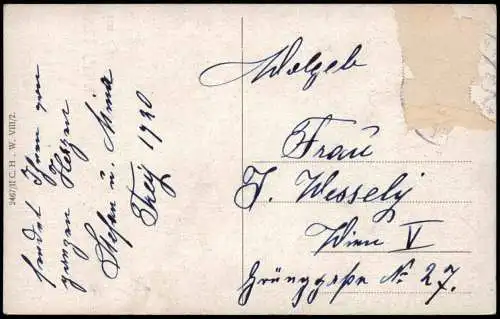 sendet Ihnen von
ganzen Herzen
Stefan u. Mina
Frey 1920
2467/II C. H. W. VIII/2.
Wolgeb
Frau
J. Wessely
Wien V
Grüngasse No 27.